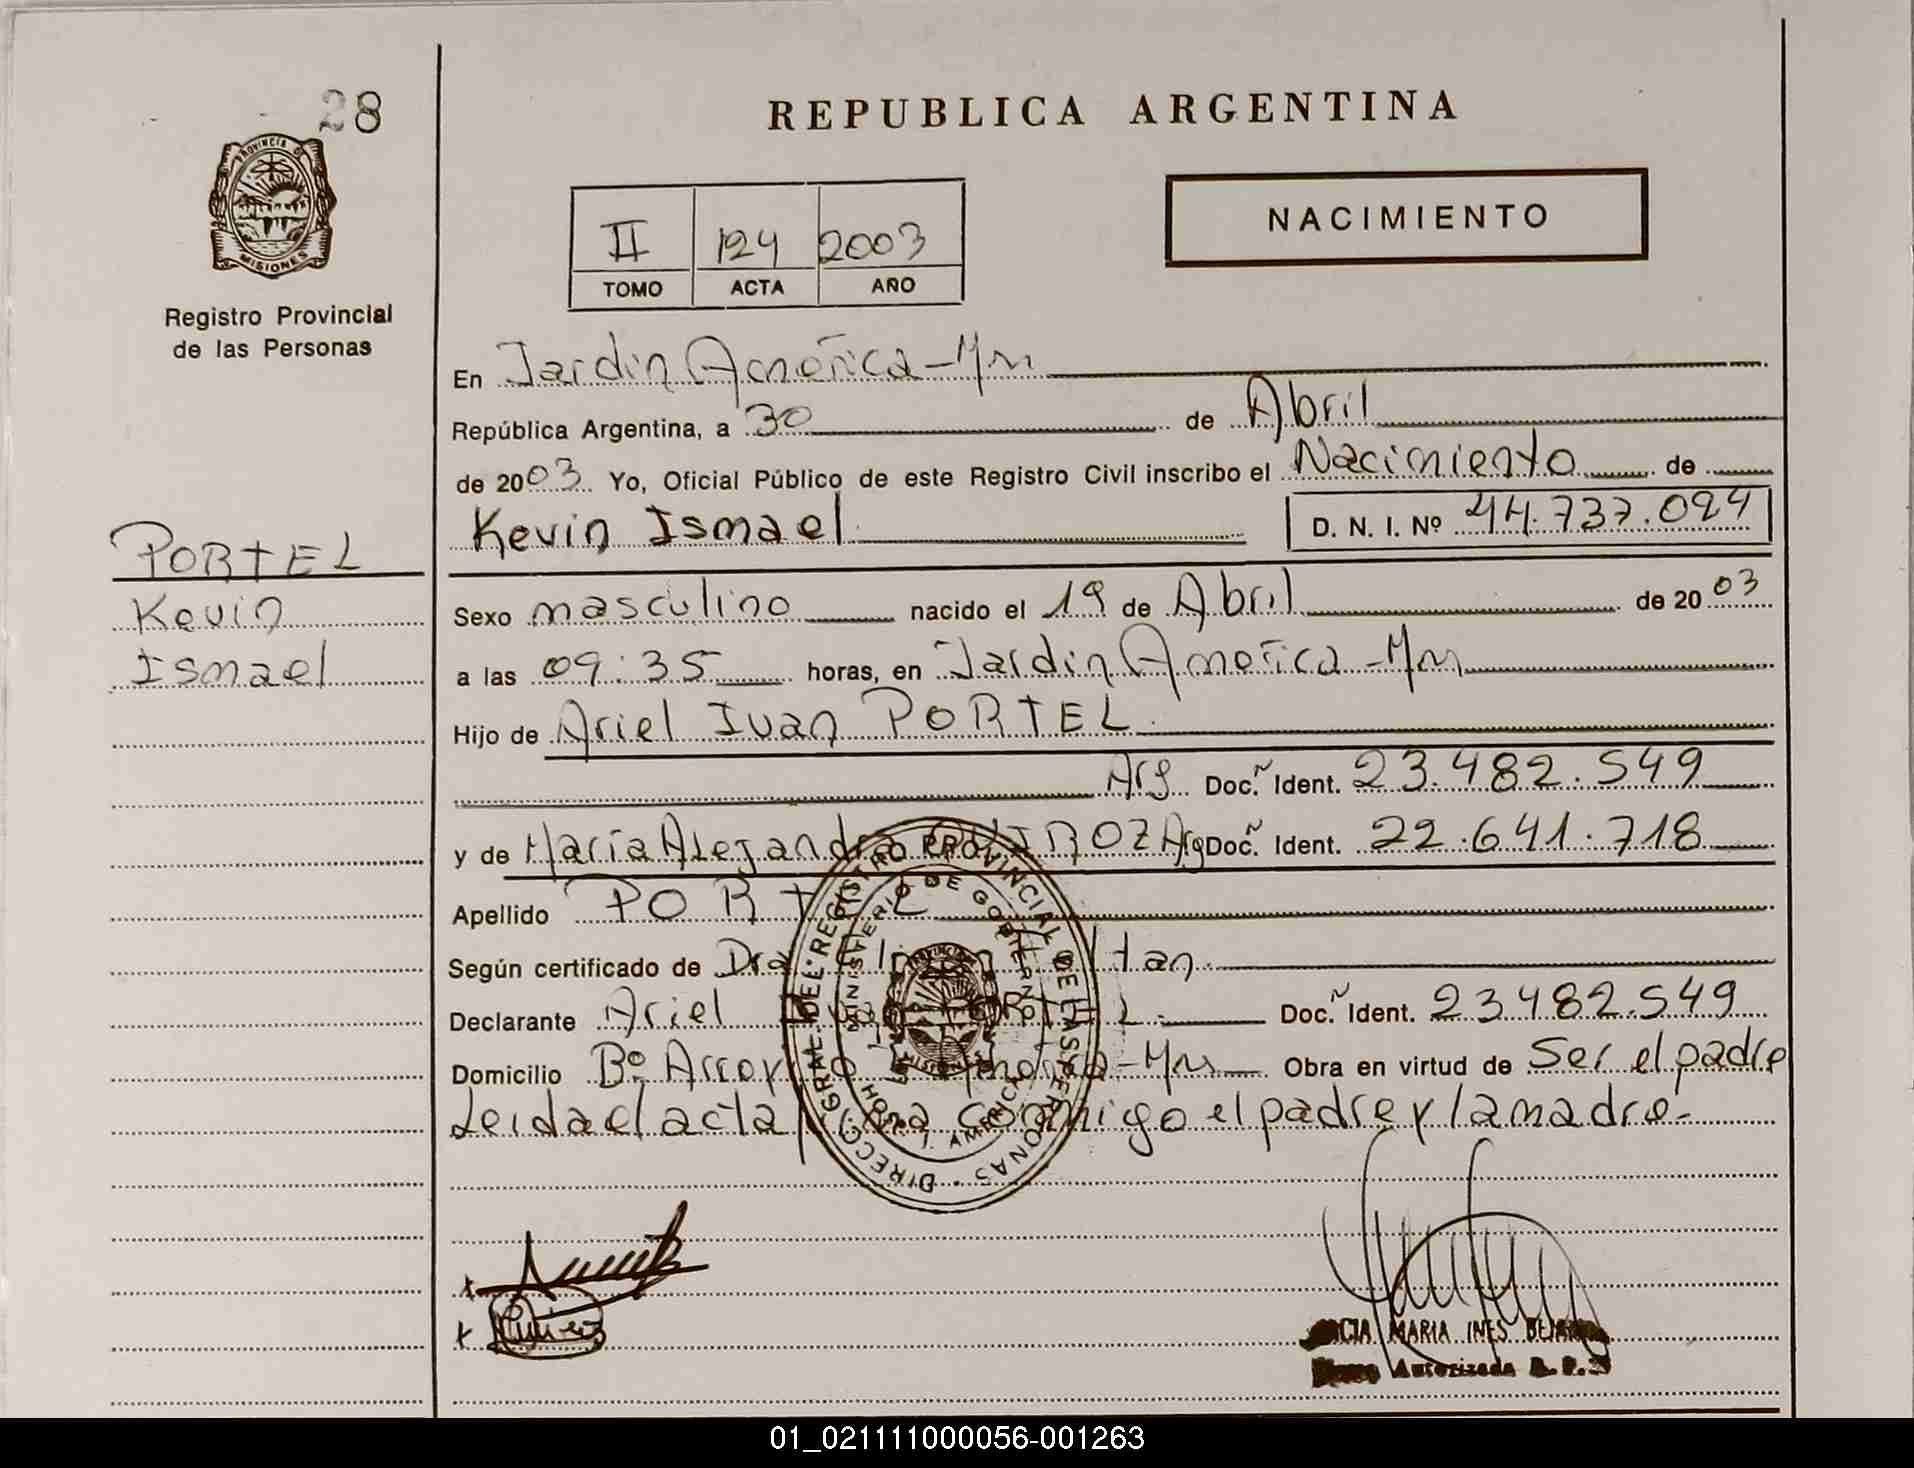 28
PROVINCIA DE
MISIONES
Registro Provincial
de las Personas
REPUBLICA ARGENTINA
II 124 2003
TOMO ACTA AÑO
NACIMIENTO
En Jardin América-Mnes
República Argentina, a 30 de Abril
de 2003 Yo, Oficial Público de este Registro Civil inscribo el Nacimiento de
Kevin Ismael D. N. I. Nº 44.737.094
PORTEL
Kevin
Ismael
Sexo masculino nacido el 19 de Abril de 2003
a las 09:35 horas, en Jardin América-Mnes
Hijo de Ariel Ivan PORTEL
Arg Doc. Ñ Ident. 23.482.549
y de María Alejandra QUIROZ Arg Doc. Ñ Ident. 22.641.718
Apellido PORTEL
Según certificado de Dra
Declarante Ariel Doc. Ñ Ident. 23.482.549
Domicilio Bº Arroyo América-Mnes Obra en virtud de Ser el padre
Leida el acta firma conmigo el padre y la madre-
DIRECC. GRAL. DEL REGISTRO PROVINCIAL DE LAS PERSONAS
MINISTERIO DE GOBIERNO
AMERICA
MARIA INES
Autorizada
01_021111000056-001263